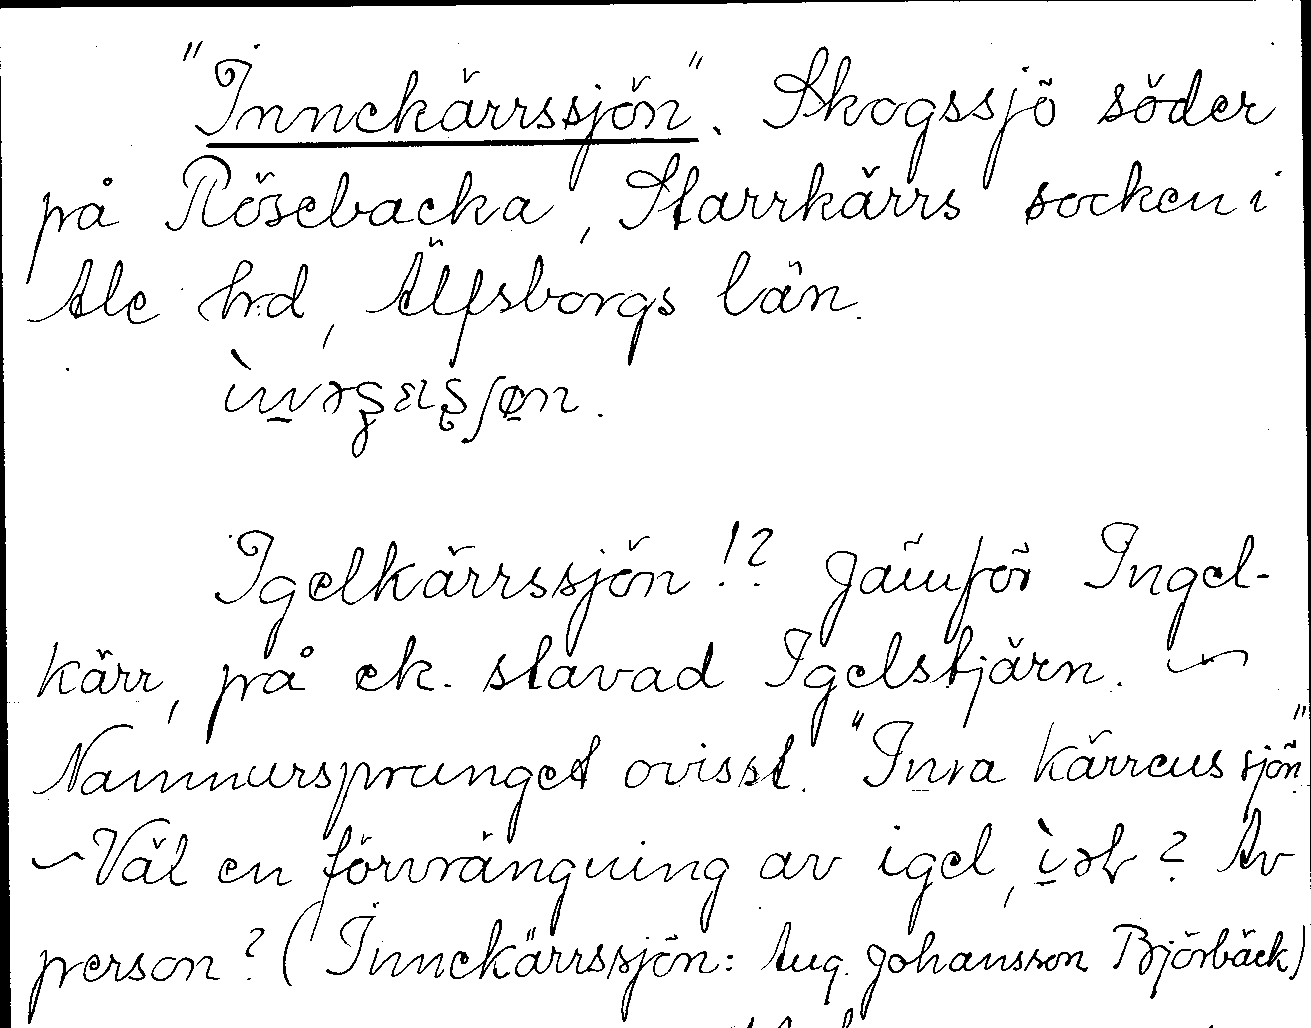 "Innekärrssjön". Skogssjö söder
på Rösebacka, Starrkärrs socken i
Ale hd, Älfsborgs län.
Igelkärrssjön!? Jämför Ingel-
kärr, på ek. stavad Igelstjärn. ~
Namnursprunget ovisst. "Inra kärrens sjön"
~ Väl en förvrängning av igel, ? Av
person? (Innekärrssjön: Aug. Johansson Björbäck)